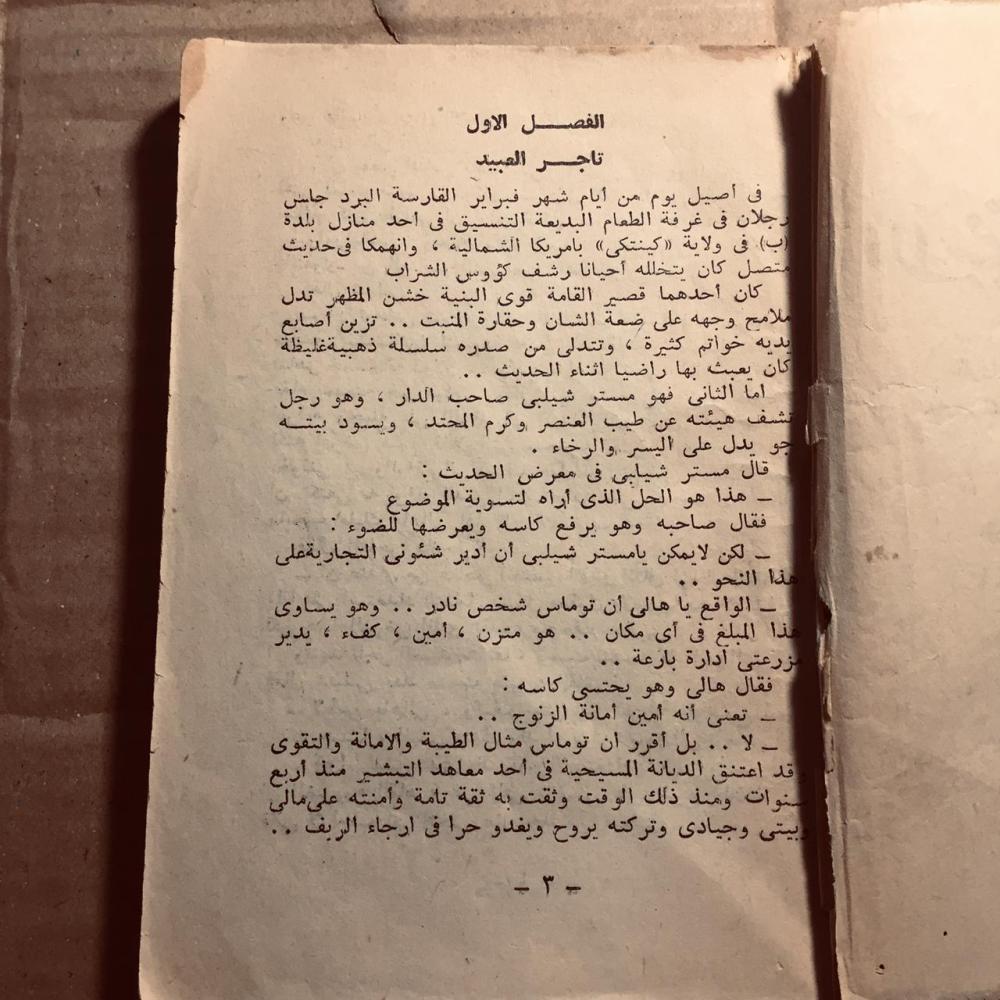 الفصل الاول
تاجر العبيد
فى أصيل يوم من أيام شهر فبراير القارسة البرد جلس
رجلان فى غرفة الطعام البديعة التنسيق فى أحد منازل بلدة
(ب) فى ولاية «كينتكى» بامريكا الشمالية ، وانهمكا فى حديث
متصل كان يتخلله أحيانا رشف كؤوس الشراب
كان أحدهما قصير القامة قوى البنية خشن المظهر تدل
ملامح وجهه على ضعة الشان وحقارة المنبت .. تزين أصابع
يديه خواتم كثيرة ، وتتدلى من صدره سلسلة ذهبية غليظة
كان يعبث بها راضيا اثناء الحديث ..
اما الثانى فهو مستر شيلبى صاحب الدار ، وهو رجل
تشف هيئته عن طيب العنصر وكرم المحتد ، ويسود بيته
جو يدل على اليسر والرخاء .
قال مستر شيلبى فى معرض الحديث :
ــ هذا هو الحل الذى أراه لتسوية الموضوع
فقال صاحبه وهو يرفع كاسه ويعرضها للضوء :
ــ لكن لايمكن يامستر شيلبى أن أدير شئونى التجارية على
هذا النحو ..
ــ الواقع يا هالى أن توماس شخص نادر .. وهو يساوى
هذا المبلغ فى أى مكان .. هو متزن ، أمين ، كفء ، يدير
مزرعتى ادارة بارعة ..
فقال هالى وهو يحتسى كاسه :
ــ تعنى أنه أمين أمانة الزنوج ..
ــ لا .. بل أقرر ان توماس مثال الطيبة والامانة والتقوى
وقد اعتنق الديانة المسيحية فى أحد معاهد التبشير منذ أربع
سنوات ومنذ ذلك الوقت وثقت به ثقة تامة وأمنته على مالى
وبيتى وجيادى وتركته يروح ويغدو حرا فى ارجاء الريف ..
ــ ٣ ــ